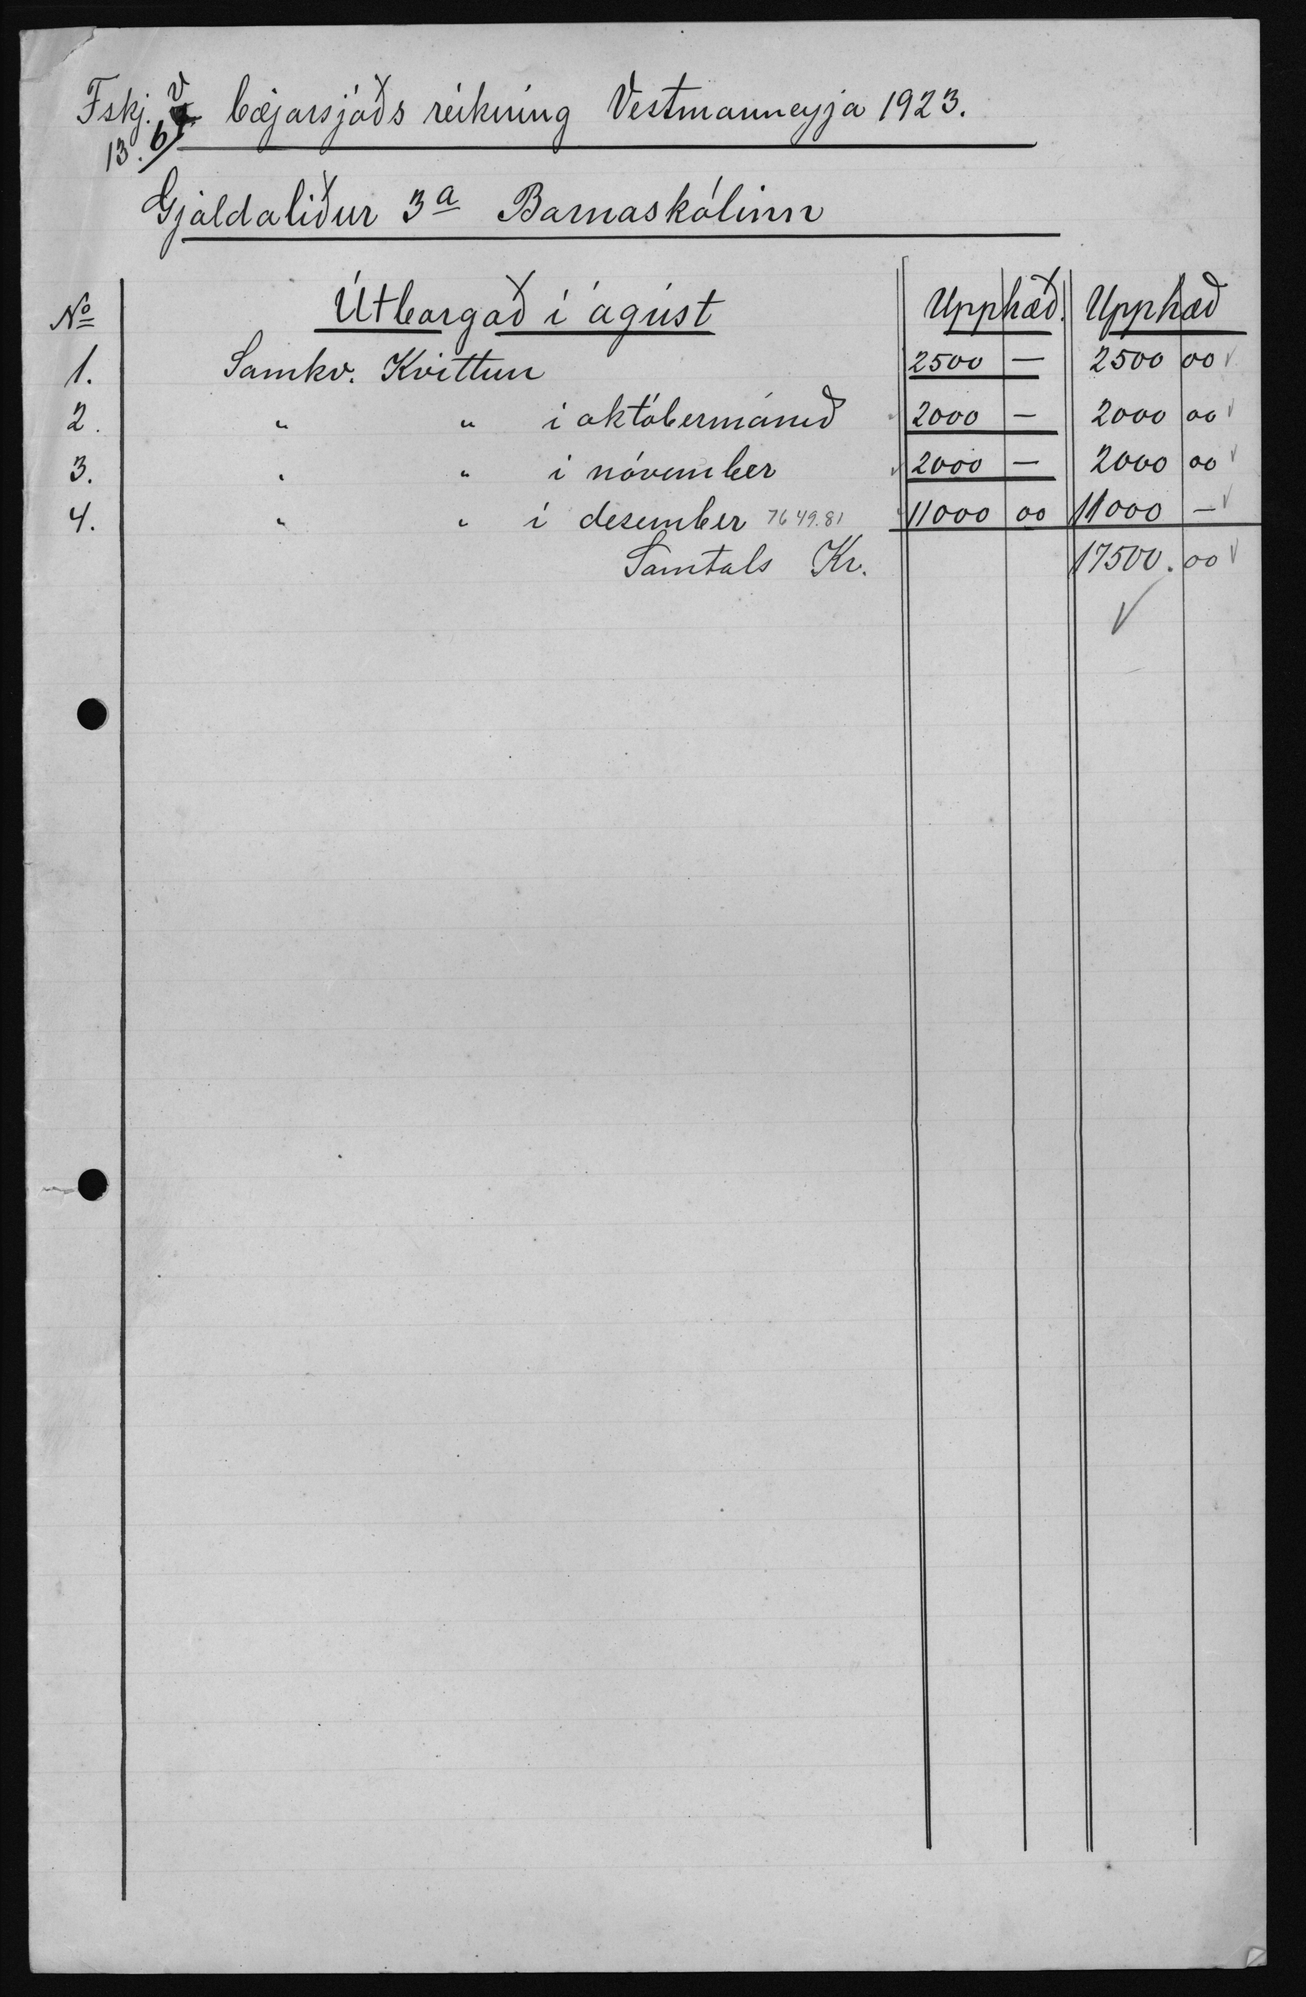 Fskj. v bæjarsjóðs reikning Vestmanneyja 1923.
13. b
Gjaldaliður 3a Barnaskólinn
No Útborgað í ágúst Upphæð. Upphæð
1. Samkv. Kvittun 2500 — 2500 00 ✓
2. " " í októbermánuð 2000 — 2000 00 ✓
3. " " í nóvember ✓ 2000 — 2000 00 ✓
4. " " í desember 7649.81 11000 00 11000 — ✓
Samtals Kr. 17500.00 ✓
✓